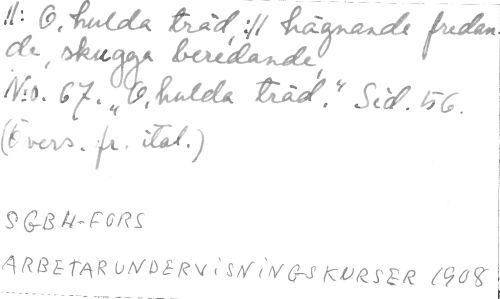 //: O, hulda träd, :// hägnande fredan-
de, skugga beredande,
N:o. 67. „O, hulda träd." Sid. 56.
(Övers. fr. ital.)
SGBH-FORS
ARBETARUNDERVISNINGSKURSER 1908